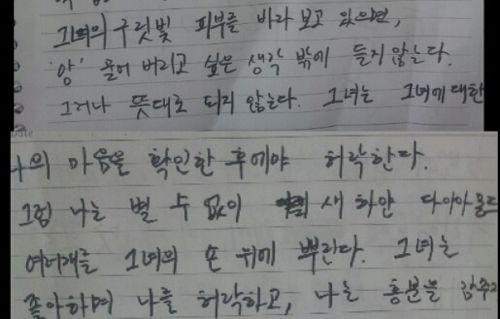 그녀의 구릿빛 피부를 바라 보고 있으면,
'앙' 물어 버리고 싶은 생각 밖에 들지않는다.
그러나 뜻대로 되지 않는다. 그녀는 그녀에 대한
나의 마음을 확인한 후에야 허락한다.
그럼 나는 별 수 없이 새 하얀 다이아몬드
여러개를 그녀의 손 위에 뿌린다. 그녀는
좋아하며 나를 허락하고, 나는 흥분을 감추지